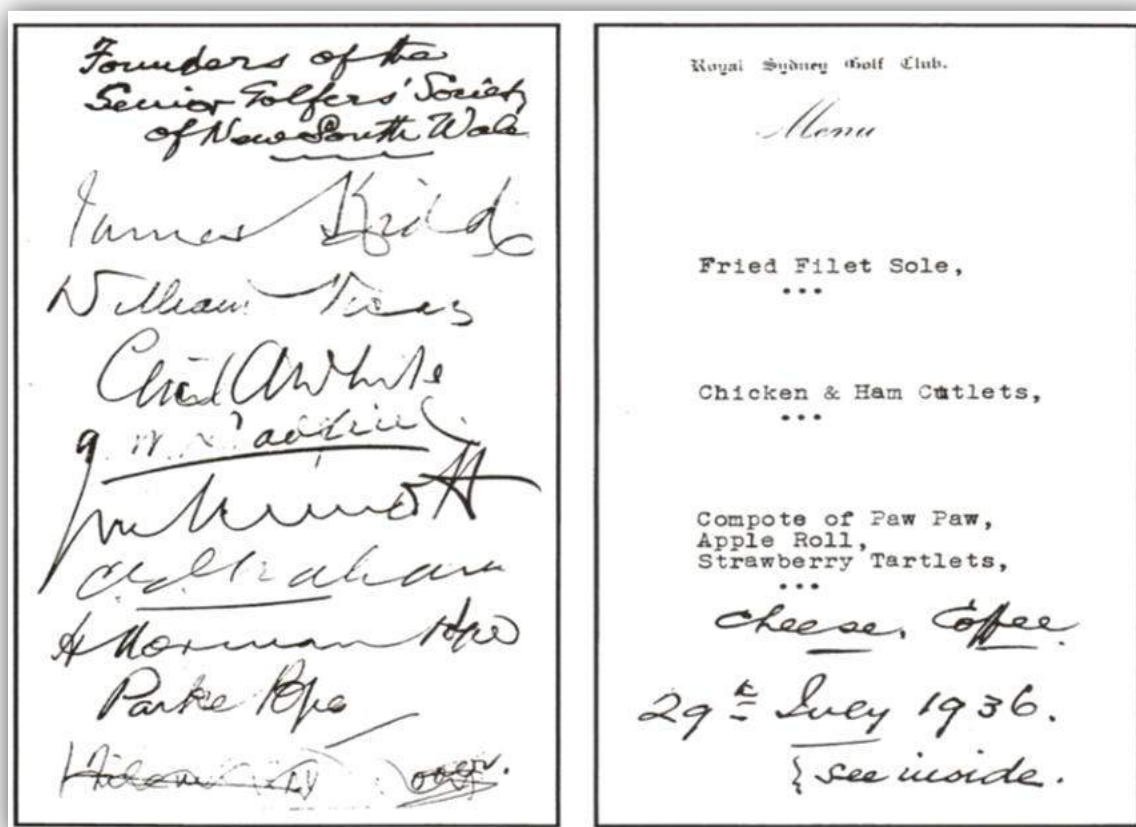 Founders of the
Senior Golfers' Society
of New South Wales
James Kidd
William Vicars
A White
Graham
H Norman Pope
Parke Pope
Royal Sydney Golf Club.
Menu
Fried Filet Sole,
...
Chicken & Ham Cutlets,
...
Compote of Paw Paw,
Apple Roll,
Strawberry Tartlets,
...
Cheese. Coffee
29th July 1936.
see inside.